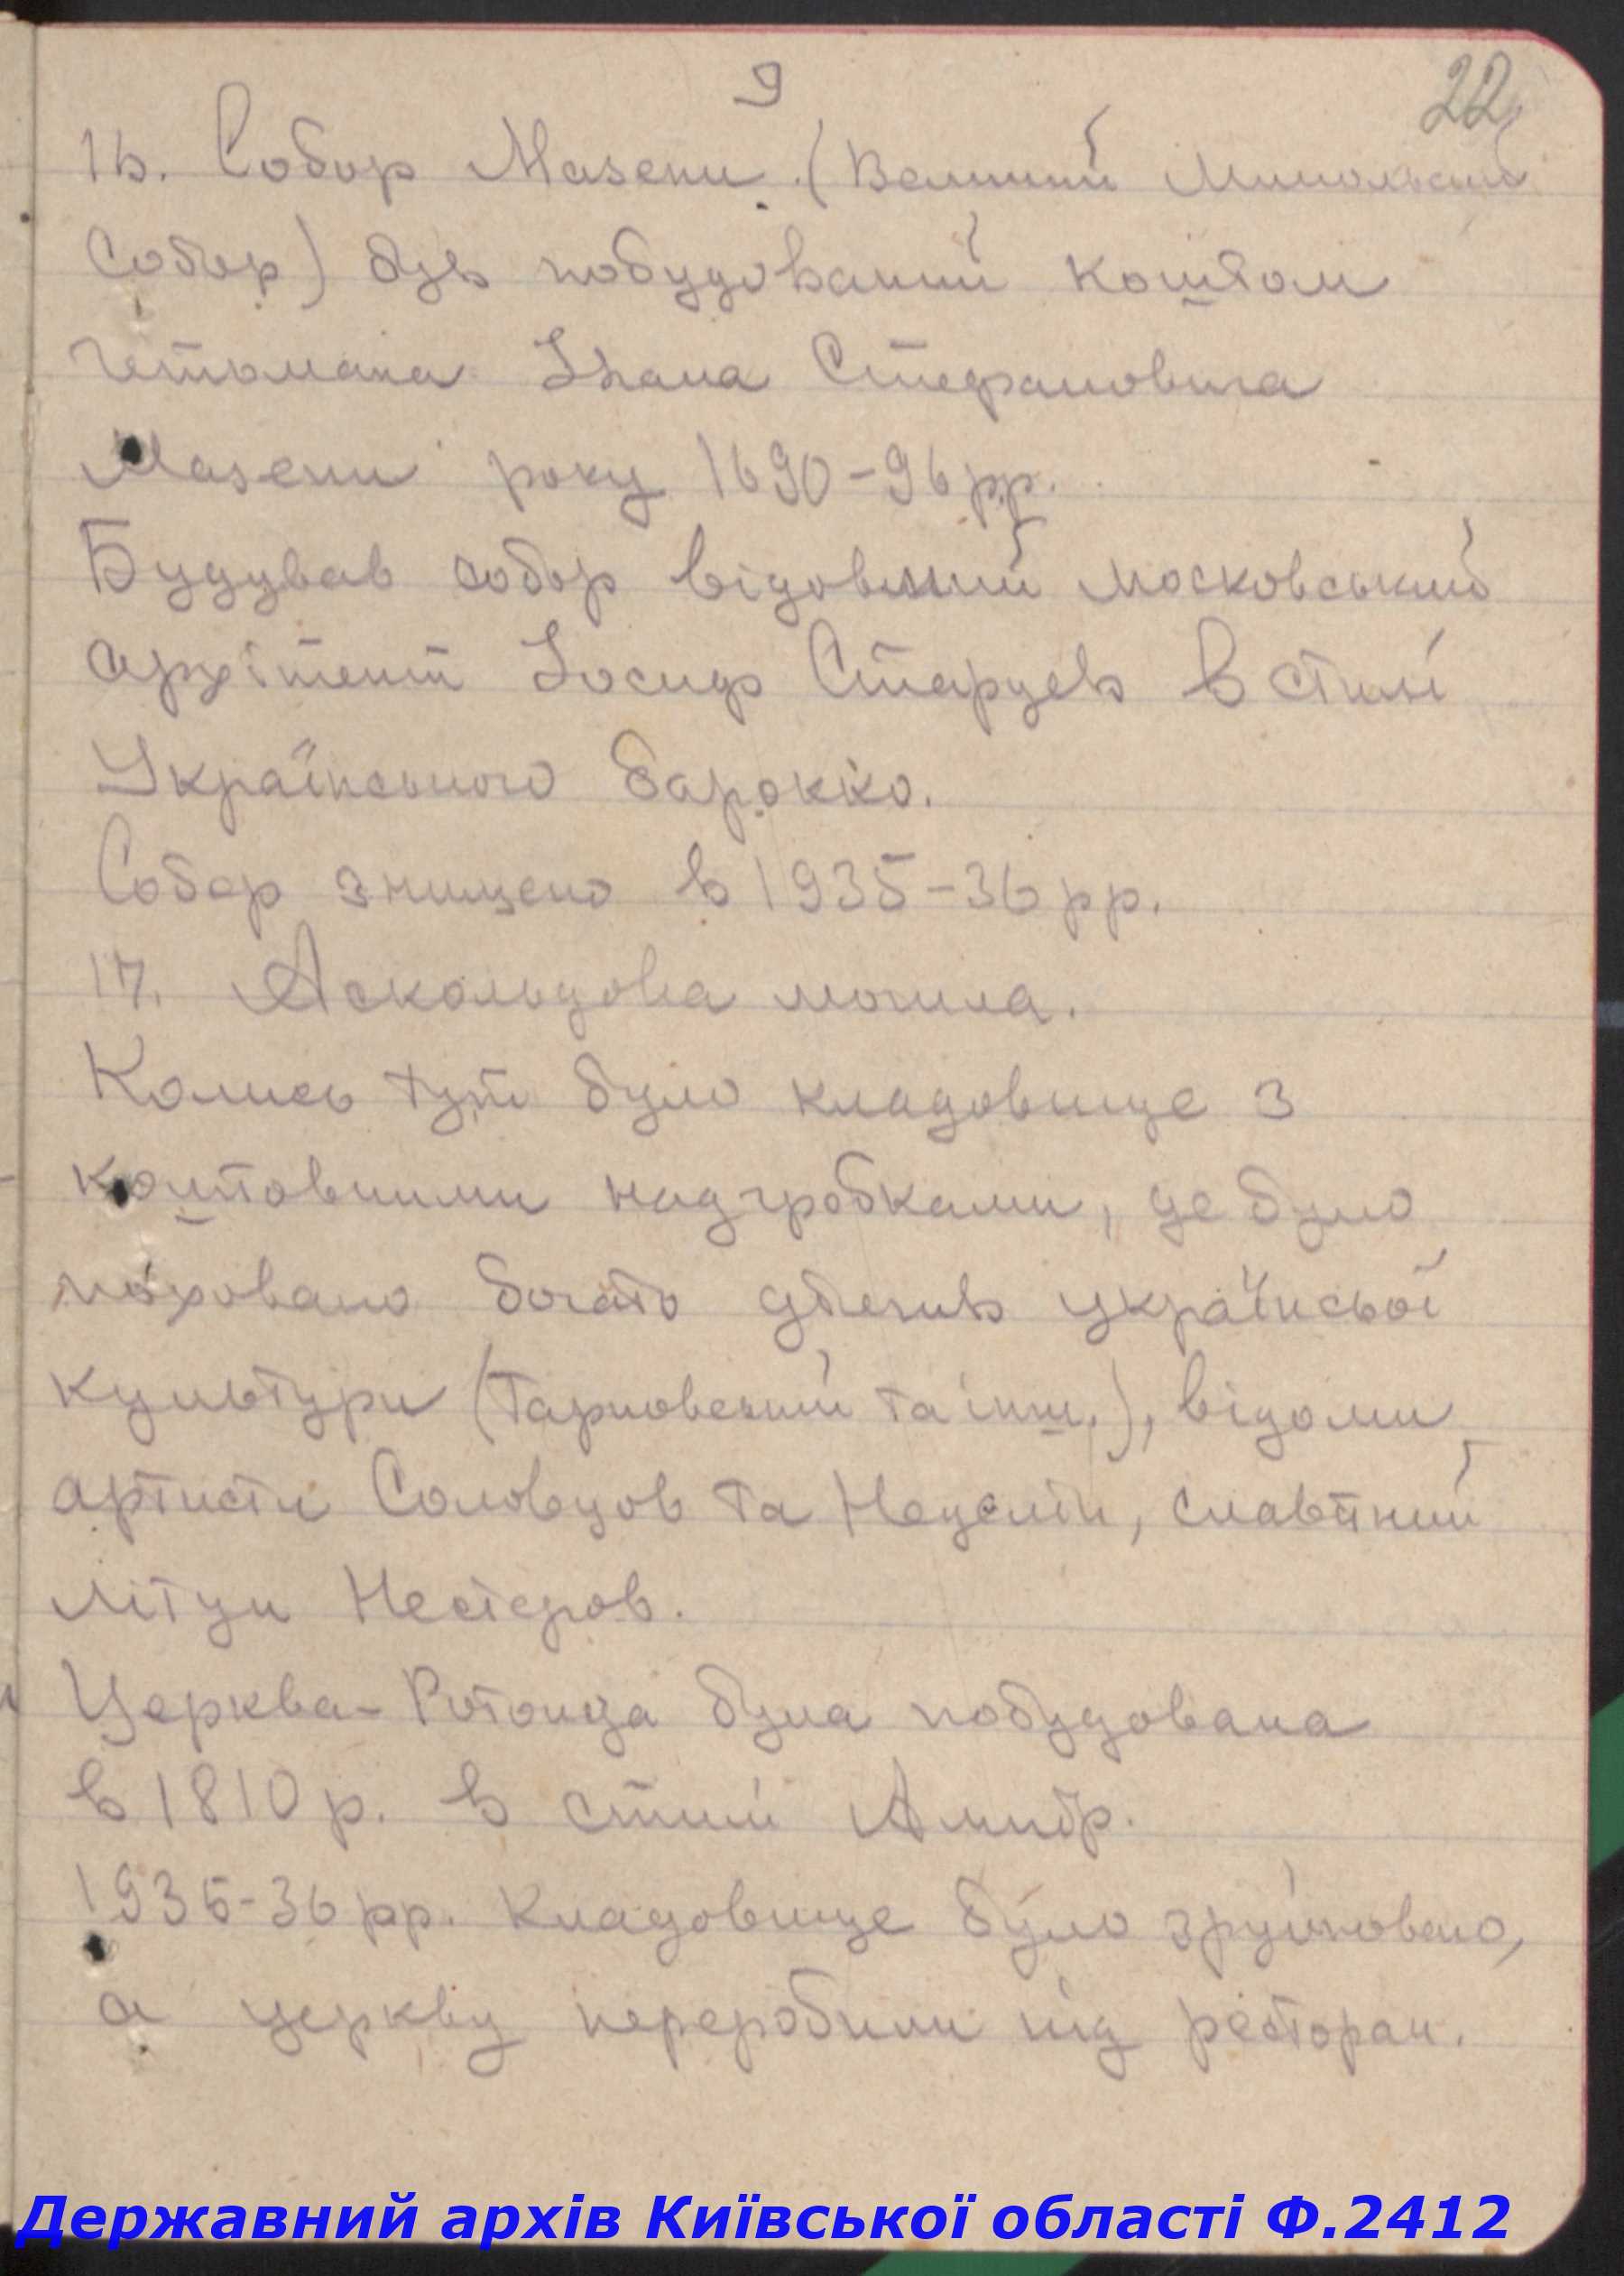 9
22
16. Собор Мазепи (Великий Микольский
Собор) був побудований коштом
гетьмана Івана Стефановича
Мазепи року 1690-96 рр.
Будував собор відомий московський
архітект Іосиф Старцев в стилі
Українського барокко.
Собор знищено в 1935-36 рр.
17. Аскольдова могила.
Колись тут було кладовище з
коштовними надгробками, де було
поховано богато діячів україньої
культури (Тарновський та інш.), відоми
артисти Соловцов та Неделін, славетний
літун Нестеров.
Церква-Ротонда була побудована
в 1810 р. в стилі Ампір.
1935-36 рр. кладовище було зруйновано,
а церкву переробили під ресторан.
Державний архів Київської області Ф.2412